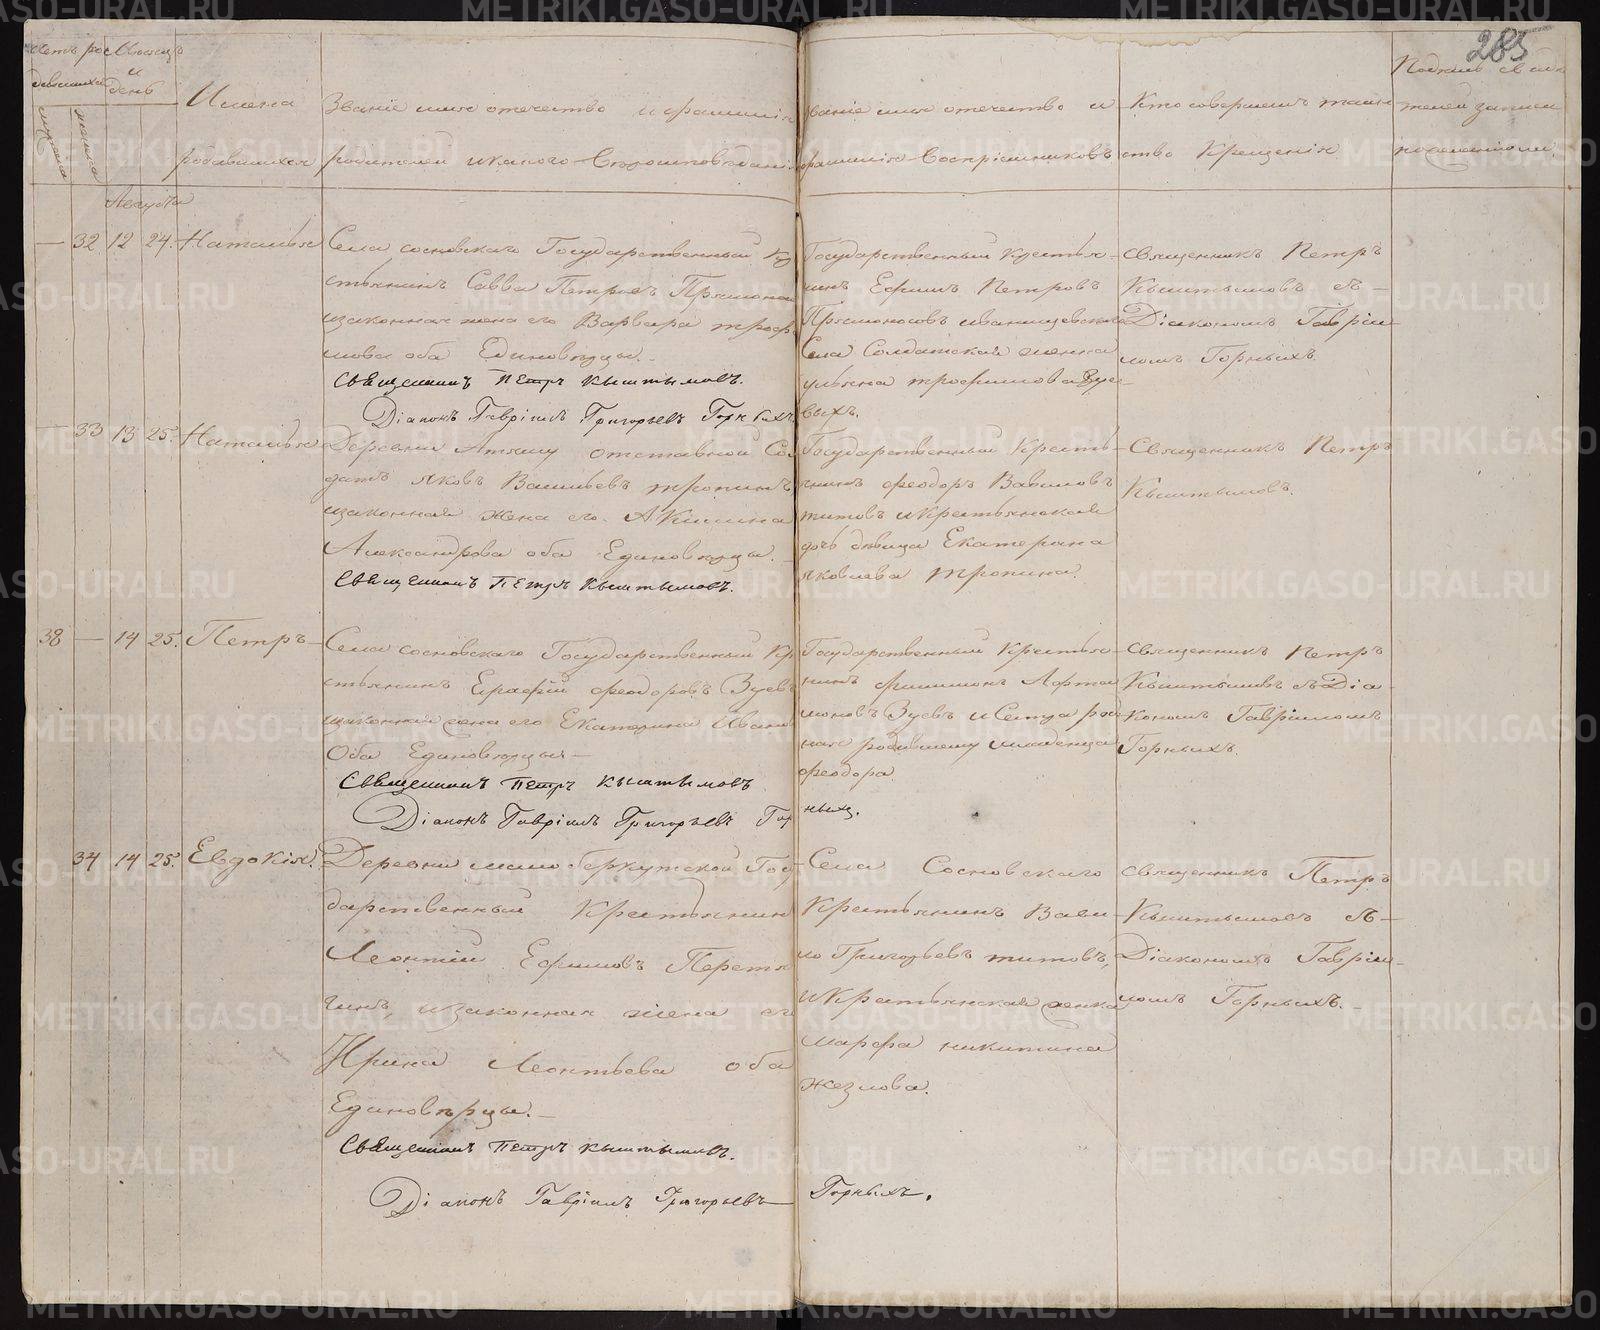 285
Счетъ ро Мѣсяцъ
и
дившихся день
Имена
Званіе имя отечество и фамилія
званіе имя отечество и
Кто совершилъ таин
мужеска
женска
родившихся
родителей и какого вѣроисповѣданія
фамилія воспріемниковъ
ство Крещенія
Августа
— 32 12 24. Наталья
Села сосновскаго Государственный Кре
стьянинъ Савва Петровъ Прямоно
изаконная жена его Варвара троф
мова оба Единовѣрцы.
Священникъ Петръ Кыштымовъ.
Діаконъ Гавріилъ Григорьевъ Горныхъ
Государственный крестья-
нинъ Ефимъ Петровъ
Прямоносовъ иванищевскаго
Села Солдатская женка
ульяна трофимова Зуе-
выхъ.
священникъ Петръ
Кыштымовъ съ-
Діакономъ Гаврiи-
ломъ Горныхъ.
— 33 13 25. Наталья
Деревни отставной Сол
датъ яковъ Васильевъ тропинъ
изаконная жена его Акилина
Александрова оба Единовѣрцы.
Священникъ Петръ Кыштымовъ.
Государственный Кресть-
янинъ феодоръ Вавиловъ
титовъ и Крестьянская
дочь дѣвица Екатерина
яковлева тропина.
Священникъ Петръ
Кыштымовъ.
38 — 14 25. Петръ
Села сосновскаго Государственный Кр
стьянинъ феодоровъ Зуевъ
изаконная жена его Екатерина Иванов
Оба Единовѣрцы
Священникъ Петръ Кыштымовъ
Діаконъ Гавріилъ Григорьевъ Гор
ныхъ.
Государственный Крестья-
нинъ филимонъ Арта
моновъ Зуевъ и Сестра род
ная родившему младенца
феодора.
священникъ Петръ
Кыштымовъ съ Діа
кономъ Гавріиломъ
Горныхъ.
34 14 25. Евдокія.
Деревни мало беркутской Госу
дарственный Крестьянин
Леонтій Ефимовъ Перетя
гинъ, изаконная жена ег
Ирина Леонтьева оба
Единовѣрцы.
Священникъ Петръ Кыштымовъ.
Діаконъ Гавріилъ Григорьевъ Горныхъ.
Села Сосновскаго
Крестьянинъ Вави-
ло Григорьевъ титовъ,
и Крестьянская женка
марфа никитина
жезлова.
священникъ Петръ
Кыштымовъ съ-
Діакономъ Гавріи-
ломъ Горныхъ.
METRIKI.GASO-URAL.RU